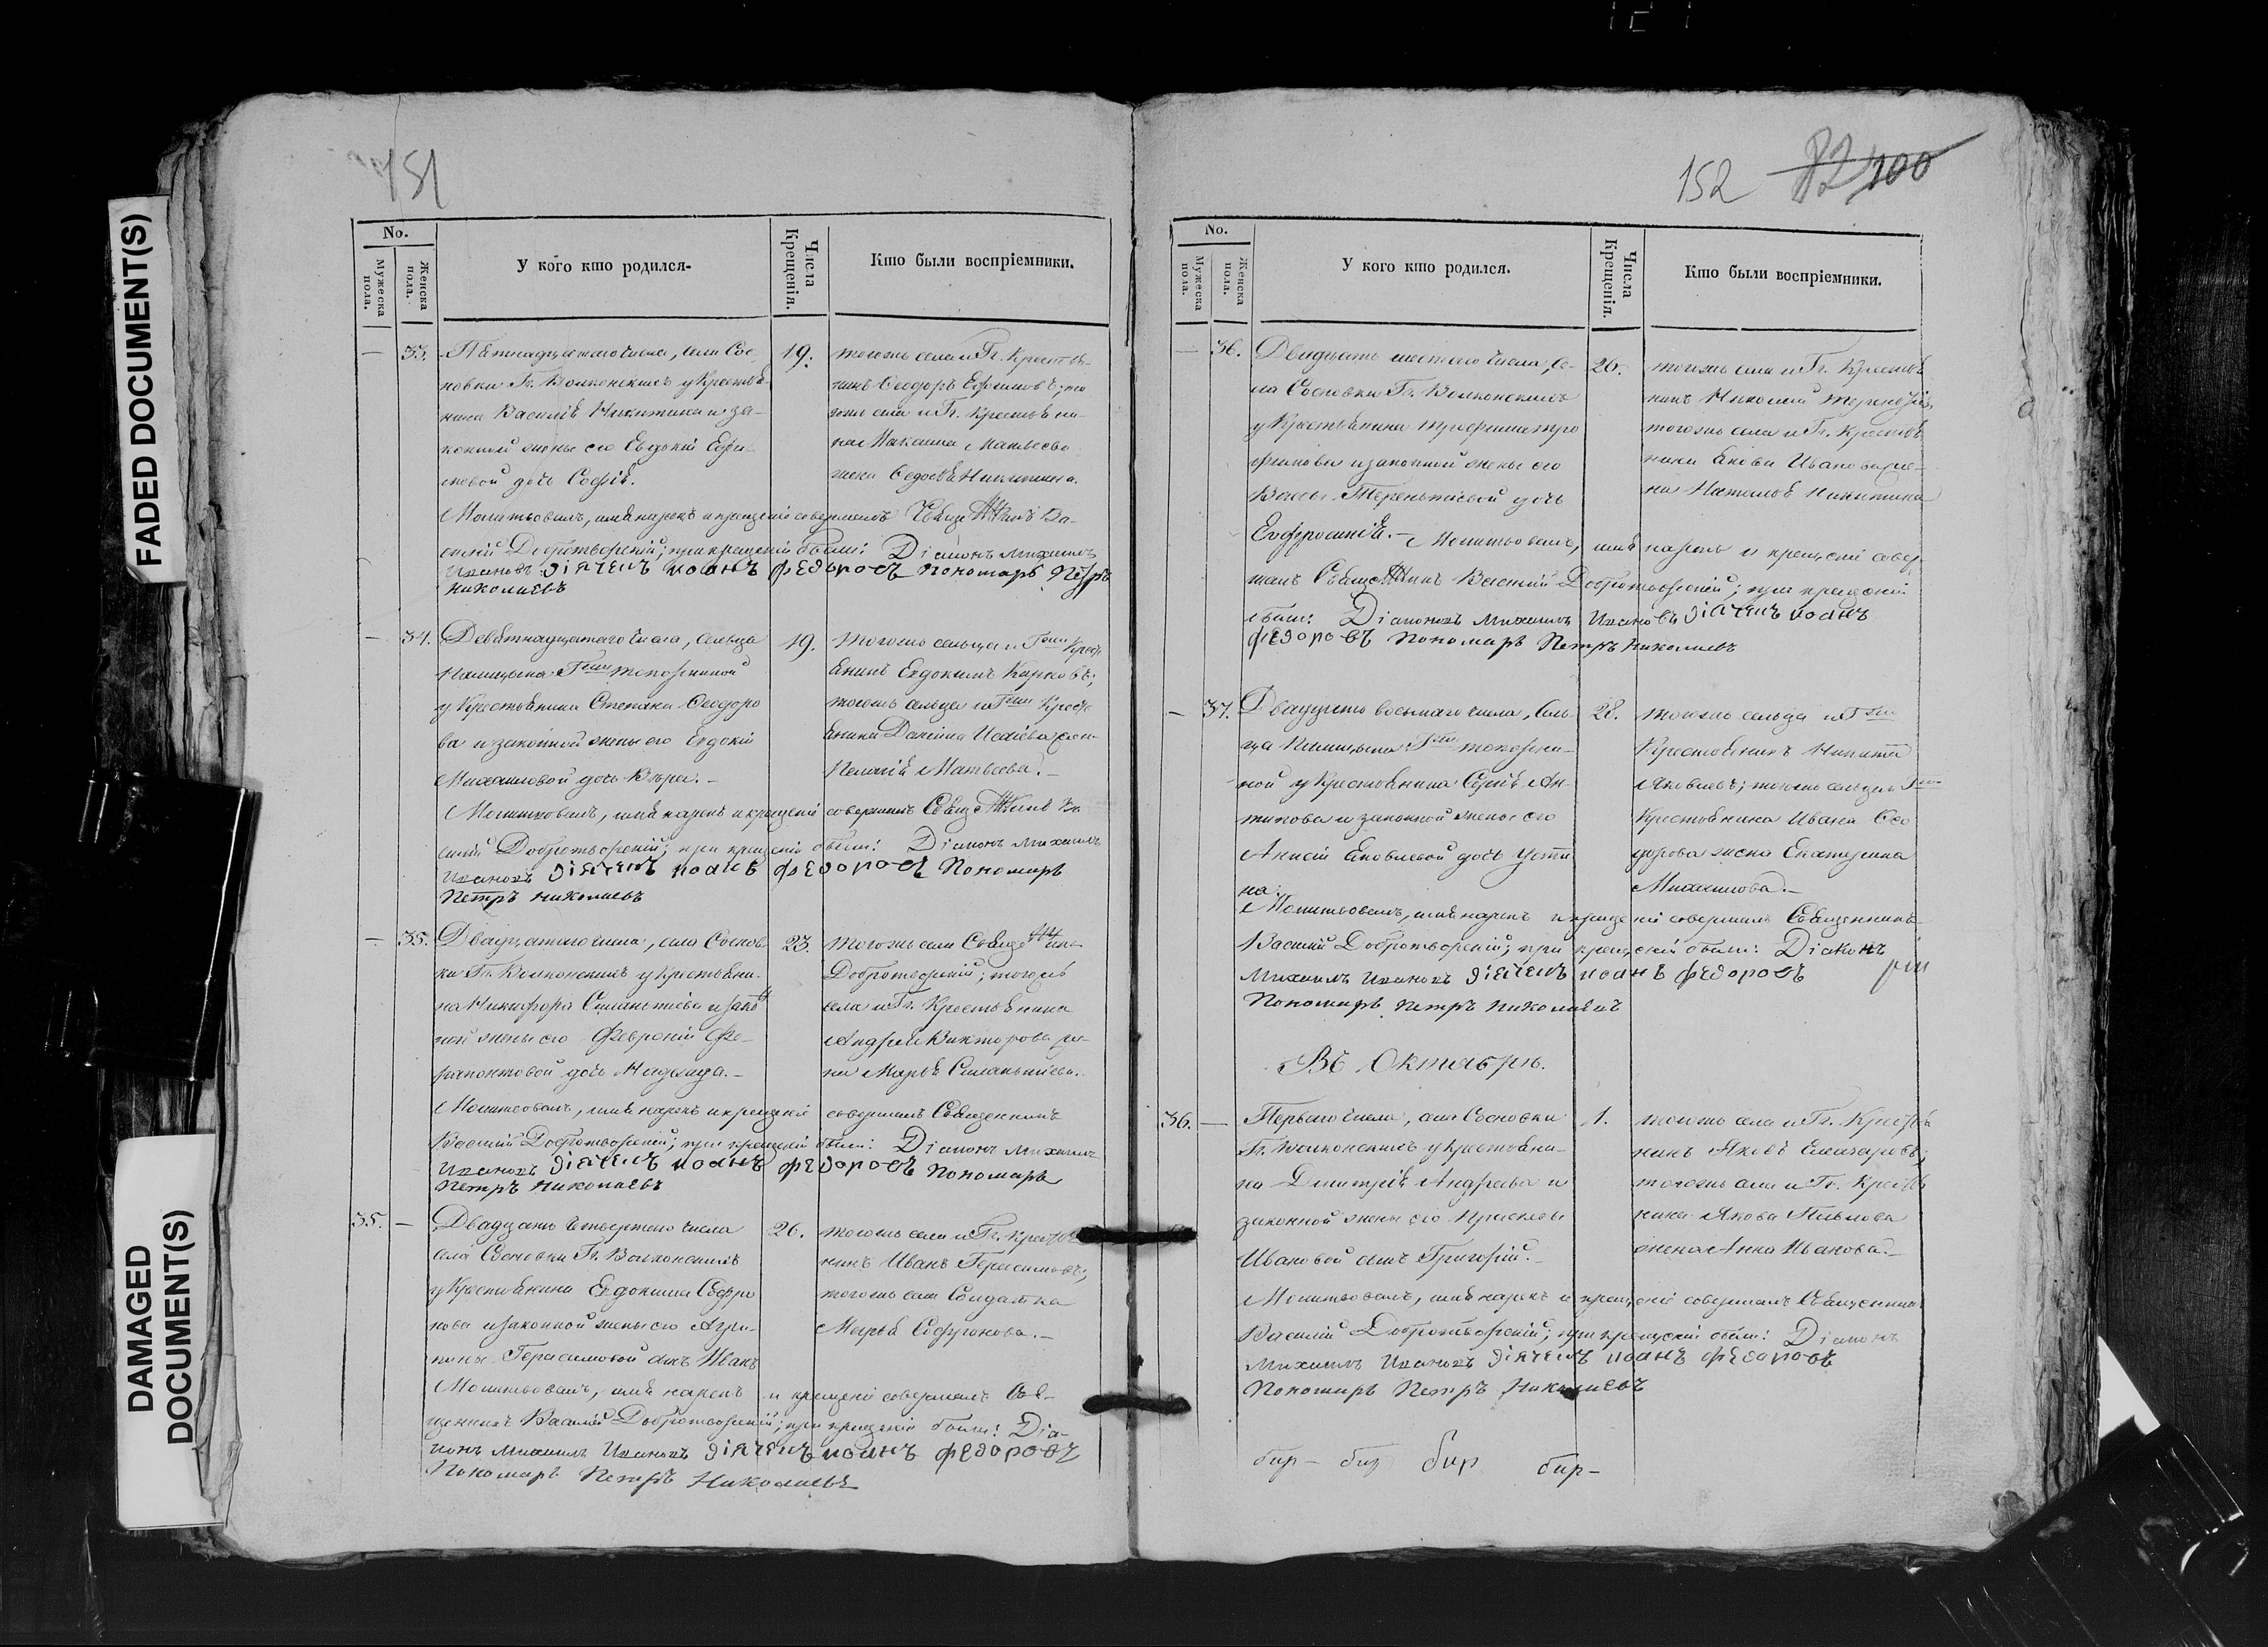 FADED DOCUMENT(S)
DAMAGED
DOCUMENT(S)
151
No.
Мужеска пола.
Женска пола.
У кого кто родился.
Числа Крещенія.
Кто были воспріемники.
— 33. Пятнадцатаго числа, села Сос-
новки Гг. Волконскихъ у Крестья-
нина Василія Никитина и за-
конной жены его Евдокіи Ефи-
мовой дочь Софія.
19.
тогожъ села и Гг. Крестья-
нинъ Ѳеодоръ Ефимовъ; то
гожъ села и Гг. Крестьяни-
на Матвеева
жена Никитина.
Молитвовалъ, имя нарекъ и крещеніе совершалъ Священникъ Ва-
силій Добротворскій; при крещеніи были: Діаконъ Михаилъ
Ивановъ дїячекъ иоанъ федоровъ Пономарь Петръ
Николаевъ
— 34. Девятнадцатаго числа, сельца
Г-жи
у Крестьянина Степана Ѳеодоро
ва и законной жены его Евдокіи
Михайловой дочь Вѣра.-
19.
тогожъ сельца и Г-жи Крест
янинъ Евдокимъ Карповъ;
тогожъ сельца и Г-жи Крест
янина Даніила Исаіева жена
Пелагія Матвеева.-
Молитвовалъ, имя нарекъ и крещеніе совершалъ Священникъ Ва
силій Добротворскій; при крещеніи были: Діаконъ Михаилъ
Ивановъ дїячекъ иоанъ федоровъ Пономарь
Петръ Николаевъ
— 35. Двадцатаго числа, села Соснов
ки Гг. Волконскихъ у Крестьяни-
на Никифора Силантіева и закон
ной жены его Февроніи Фе-
рапонтовой дочь Надежда.-
23.
тогожъ села Священникъ
Добротворскій; тогожъ
села и Гг. Крестьянина
Андрея Викторова же-
на Марья Силантіева.
Молитвовалъ, имя нарекъ и крещеніе совершалъ Священникъ
Василій Добротворскій; при крещеніи были: Діаконъ Михаилъ
Ивановъ дїячекъ иоанъ федоровъ Пономарь
Петръ Николаевъ
35. — Двадцать четвертаго числа
села Сосновки Гг. Волконскихъ
у Крестьянина Евдокима Софро
нова и законной жены его Агри-
пины Герасимовой сынъ Иванъ
26.
тогожъ села и Гг. Крестья
нинъ Иванъ Герасимовъ;
тогожъ села Солдатка
Марья Софронова.-
Молитвовалъ, имя нарекъ и крещеніе совершалъ Свя-
щенникъ Василій Добротворскій; при крещеніи были: Діа-
конъ Михаилъ Ивановъ дїячекъ иоанъ федоровъ
Пономарь Петръ Николаевъ
152 82 100
No.
Мужеска пола.
Женска пола.
У кого кто родился.
Числа Крещенія.
Кто были воспріемники.
— 36. Двадцать шестаго числа, се-
ла Сосновки Гг. Волконскихъ
у Крестьянина Трофима Тро
фимова и законной жены его
Терентіевой дочь
Евфросинія.-
26.
тогожъ села и Гг. Крестья
нинъ Николай
тогожъ села и Гг. Крестья
нина Якова Иванова же-
на Наталья Никитина
Молитвовалъ, имя нарекъ и крещеніе совер
шалъ Священникъ Василій Добротворскій; при крещеніи
были: Діаконъ Михаилъ Ивановъ дїячекъ иоанъ
федоровъ Пономарь Петръ Николаевъ
— 37. Двадцать восьмаго числа, сель-
ца Г-жи
у Крестьянина Сергія Ан-
типова и законной жены его
Анисіи Яковлевой дочь Усти
на.
28.
тогожъ сельца и Г-жи
Крестьянинъ Никита
Яковлевъ; тогожъ сельца и Г-жи
Крестьянина Ивана Ѳео
дорова жена Екатерина
Михайлова.-
Молитвовалъ, имя нарекъ и крещеніе совершалъ Священникъ
Василій Добротворскій; при крещеніи были: Діаконъ
Михаилъ Ивановъ дїячекъ иоанъ федоровъ
Пономарь Петръ Николаевъ
Въ Октябрѣ.
36. — Перваго числа, села Сосновки
Гг. Волконскихъ у Крестьяни-
на Димитрія Андреева и
законной жены его Прасковьи
Ивановой сынъ Григорій.-
1.
тогожъ села и Гг. Крестья
нинъ Яковъ Елеазаровъ;
тогожъ села и Гг. Крестья
нина Якова Павлова
жена Анна Иванова.-
Молитвовалъ, имя нарекъ и крещеніе совершалъ Священникъ
Василій Добротворскій; при крещеніи были: Діаконъ
Михаилъ Ивановъ дїячекъ иоанъ федоровъ
Пономарь Петръ Николаевъ